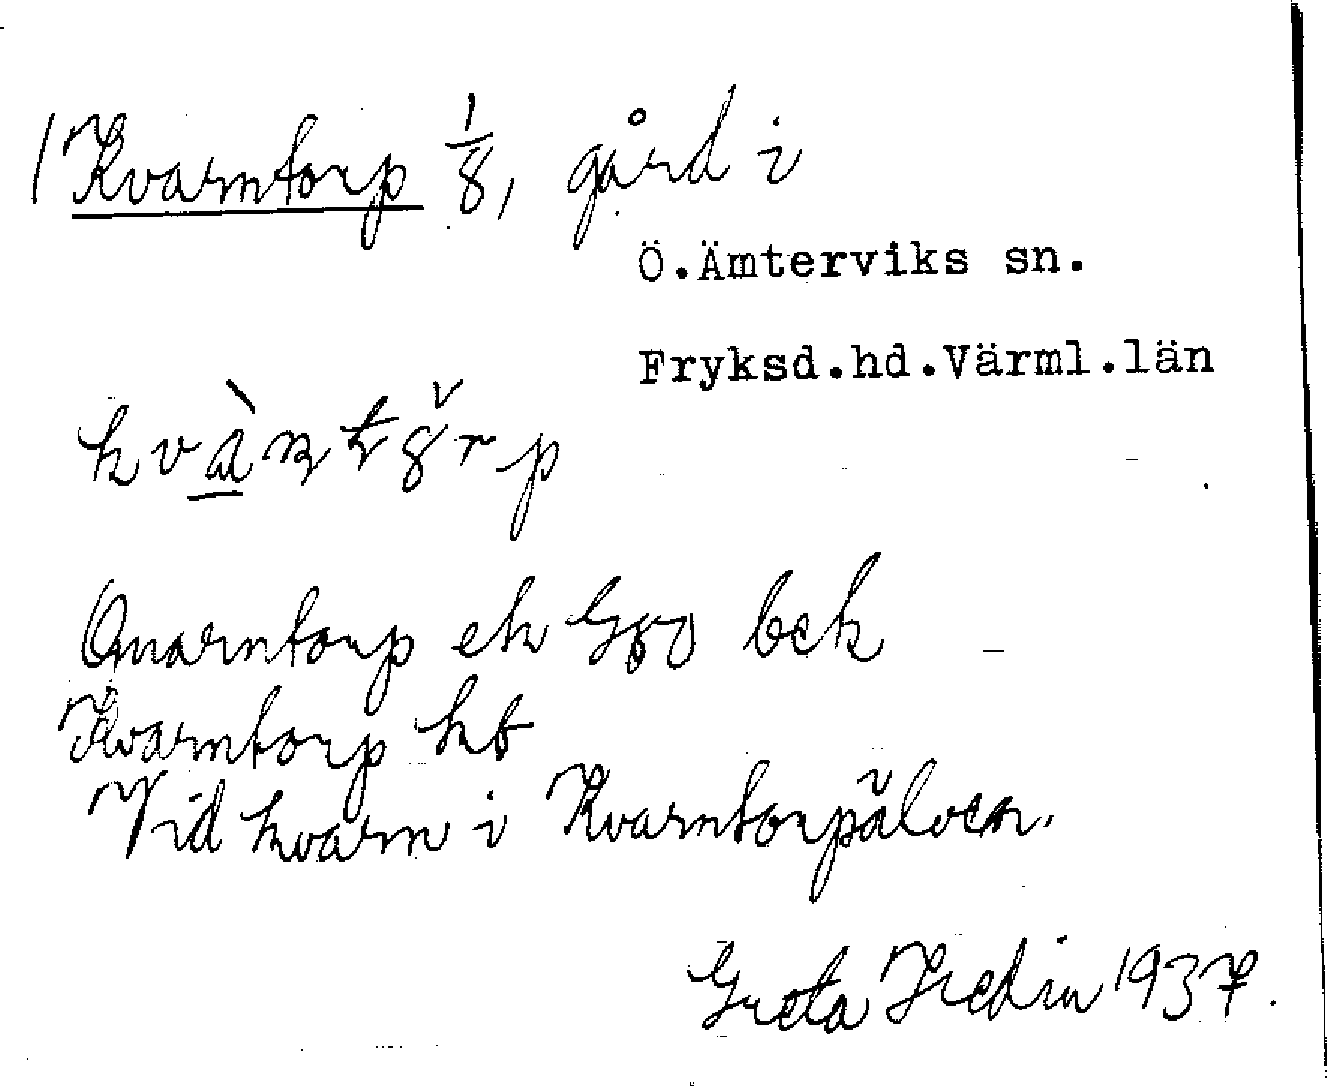 1 Kvarntorp 1/8, gård i
Ö.Ämterviks sn.
Fryksd.hd.Värml.län
Quarntorp ek bek
Kvarntorp
Vid kvarn i Kvarntorpälven.
Greta Hedin 1937.